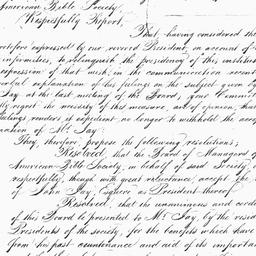 American Bible Society,
Respectfully Report,
That having considered the
expressed by our revered President, on account of
infirmities, to relinquish the presidency of this institut
expression of that wish, in the communication recent
verbal explanation of his feelings on the subject given by
Jay at the last meeting of the Board; your Committ
regret the necessity of this measure, are of opinion, that
feelings renders it expedient no longer to withhold the acce
nation of Mr. Jay.
They therefore propose the following resolutions;
Resolved, that the Board of Managers of
American Bible Society, in behalf of said Society,
respectfully, though with great reluctance, accept the
of John Jay, Esquire as President thereof.
Resolved, that the unanimous and cordi
of this Board be presented to Mr. Jay, by the resid
Presidents of the society, for the benefits which have
from his past countenance and aid of its importan